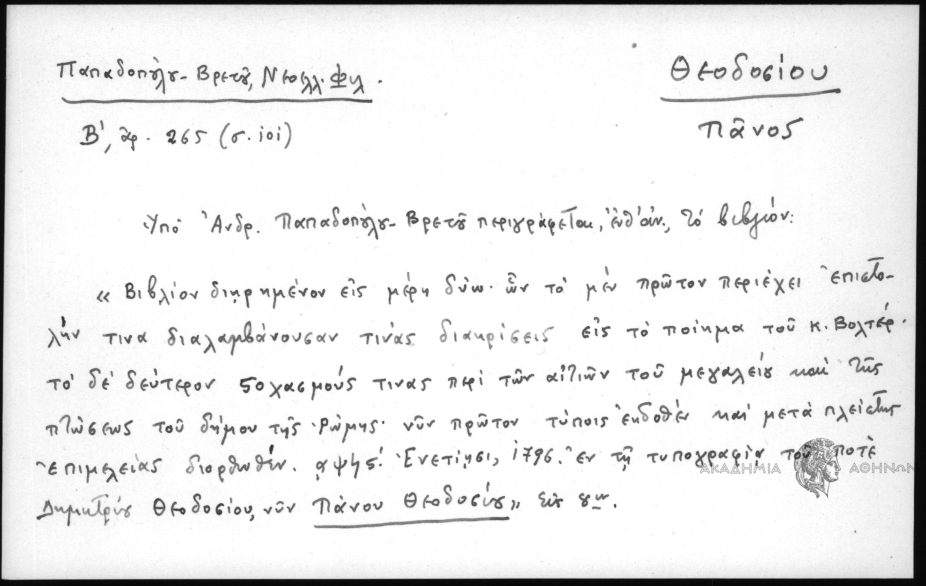 Παπαδοπούλου-Βρετοῦ, Νεοελλ. Φιλ.
Θεοδοσίου
Β', ἀρ. 265 (σ. 101)
Πᾶνος
Ὑπό Ἀνδρ. Παπαδοπούλου-Βρετοῦ περιγράφεται, ἔνθ' ἀν., τό βιβλίον:
« Βιβλίον διῃρημένον εἰς μέρη δύω· ὧν τό μέν πρῶτον περιέχει ἐπιστο-
λήν τινα διαλαμβάνουσαν τινάς διακρίσεις εἰς τό ποίημα τοῦ κ. Βολτέρ·
τό δέ δεύτερον στοχασμούς τινας περί τῶν αἰτιῶν τοῦ μεγαλείου καί τῆς
πτώσεως τοῦ δήμου τῆς Ῥώμης· νῦν πρῶτον τύποις ἐκδοθέν καί μετά πλείστης
ἐπιμελείας διορθωθέν. ͵αψϟς'. Ἐνετίησι, 1796. Ἐν τῇ τυπογραφίᾳ τοῦ ποτέ
Δημητρίου Θεοδοσίου, νῦν Πάνου Θεοδοσίου» εἰς 8ον.
ΑΚΑΔΗΜΙΑ ΑΘΗΝΩΝ